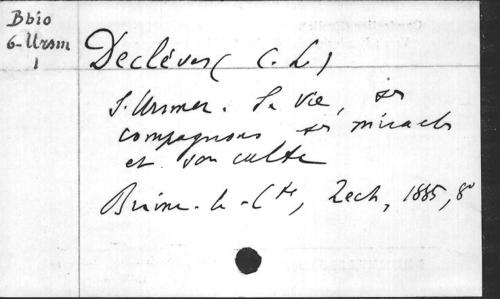 Bbio
6-Ursm
1
Declèves (C. L)
S. Ursmer. Sa vie, ses
compagnons ses miracles
et son culte
Braine-le-Cte, Zech, 1885, 8°